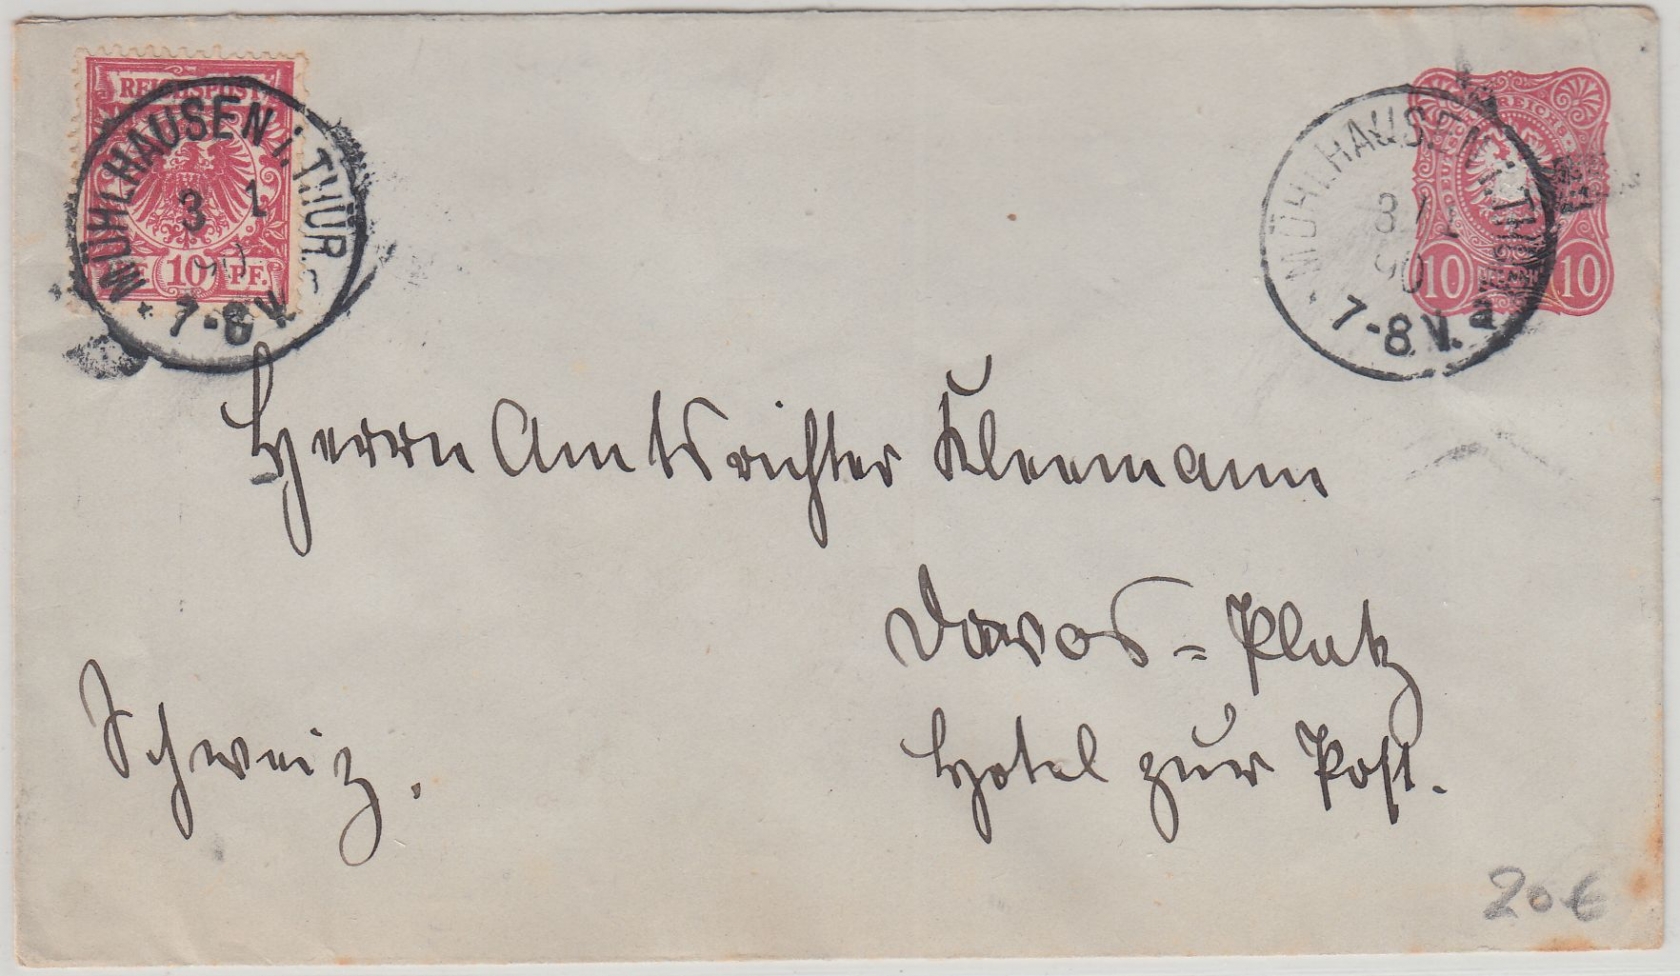 REICHSPOST
10 PF.
MÜHLHAUSEN i. THÜR.
3 1
90
7-8 V.
REICHS
10 10
MÜHLHAUSEN i. THÜR.
3/1
90
7-8 V. a
Herrn Amtsrichter Kleemann
Davos = Platz
Schweiz.
Hotel zur Post.
20 €